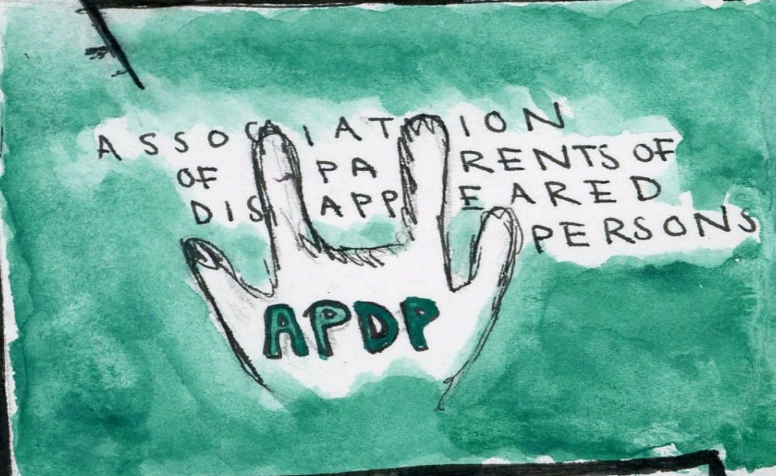 ASSOCIATION
OF PARENTS OF
DISAPPEARED
PERSONS
APDP